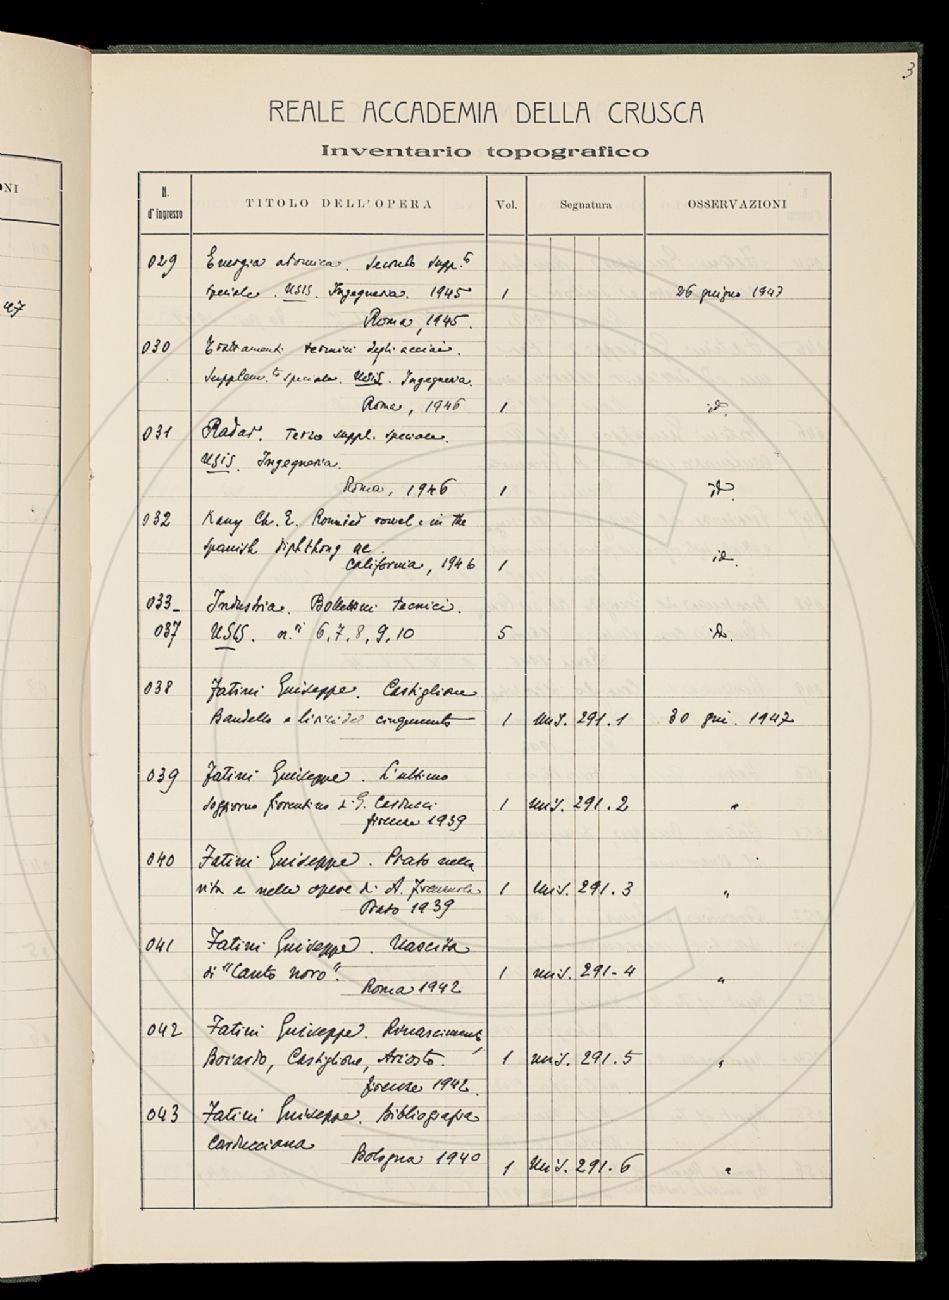 3
REALE ACCADEMIA DELLA CRUSCA
Inventario topografico
N. d'ingresso TITOLO DELL'OPERA Vol. Segnatura OSSERVAZIONI
ONI
029 Energia atomica. Secondo suppl.to
speciale. USIS. Ingegneria. 1945 1 26 giugno 1947
Roma, 1945.
030 Trattamenti termici degli acciai.
Supplem.to speciale. USIS. Ingegneria.
Roma, 1946 1 id.
031 Radar. Terzo suppl. speciale.
USIS. Ingegneria.
Roma, 1946 1 id.
032 Kany Ch. E. Rounded vowel in the
spanish diphthong ue.
California, 1946 1 id.
033_ Industria. Bollettini tecnici.
037 USIS. n.i 6, 7, 8, 9, 10 5 id.
038 Fatini Giuseppe. Castiglione
Bandello e lirici del cinquecento 1 Mis. 291.1 30 giu. 1947
039 Fatini Giuseppe. L'ultimo
soggiorno fiorentino di G. Carducci
Firenze 1939 1 Mis. 291.2 "
040 Fatini Giuseppe. Prato nella
vita e nelle opere di A. Firenzuola
Prato 1939 1 Mis. 291.3 "
041 Fatini Giuseppe. Nascita
di "Canto novo".
Roma 1942 1 Mis. 291-4 "
042 Fatini Giuseppe. Rinascimento,
Boiardo, Castiglione, Ariosto.
Firenze 1942. 1 Mis. 291.5 "
043 Fatini Giuseppe. Bibliografia
Carducciana
Bologna 1940 1 Mis. 291.6 "